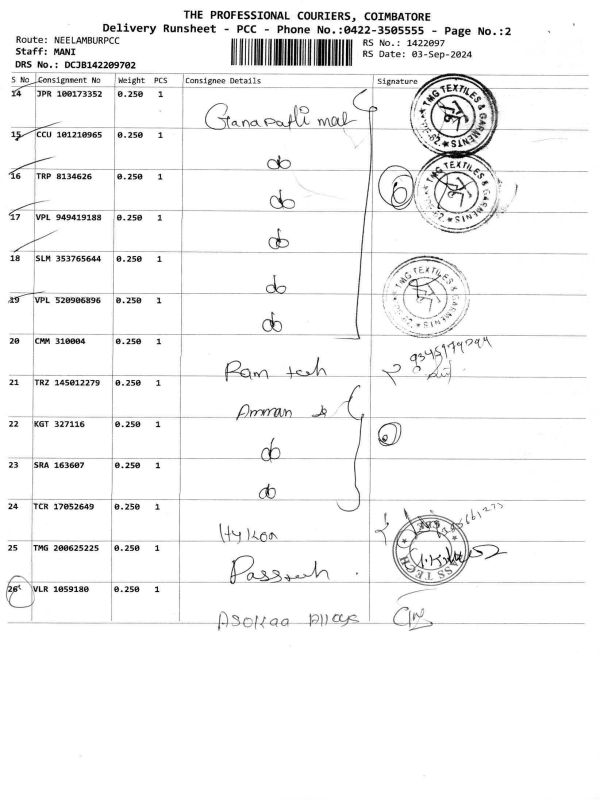 THE PROFESSIONAL COURIERS, COIMBATORE
Delivery Runsheet - PCC - Phone No.:0422-3505555 - Page No.:2
Route: NEELAMBURPCC
RS No.: 1422097
Staff: MANI
RS Date: 03-Sep-2024
DRS No.: DCJB142209702
S No Consignment No Weight PCS Consignee Details Signature
14 JPR 100173352 0.250 1
Ganapathi mal
TMG TEXTILES & GARMENTS
15 CCU 101210965 0.250 1
do
16 TRP 8134626 0.250 1
do
TMG TEXTILES & GARMENTS
17 VPL 949419188 0.250 1
do
18 SLM 353765644 0.250 1
do
TMG TEXTILES & GARMENTS
19 VPL 520906896 0.250 1
do
20 CMM 310004 0.250 1
Ram tech
21 TRZ 145012279 0.250 1
Amman
22 KGT 327116 0.250 1
do
23 SRA 163607 0.250 1
do
24 TCR 17052649 0.250 1
Hykon
25 TMG 200625225 0.250 1
Passtech
PASS TECH
26 VLR 1059180 0.250 1
Asokaa alloys